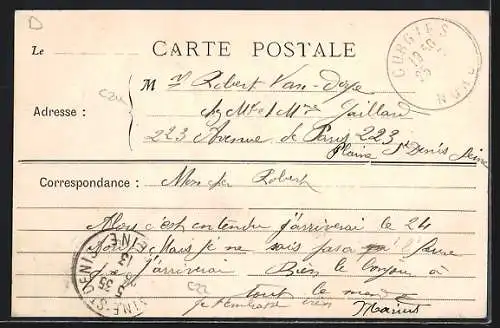 D
Le
CARTE POSTALE
CURGIES NORD
Adresse :
M Mr Robert Van-
chez Mr et Mme Gaillard
223 Avenue de Paris 223
Plaine St Denis Seine
Correspondance : Mon cher Robert
Alors c'est entendu j'arriverai le 24
Aout Mais je ne sais pas
j'arriverai Bien le bonjour à
tout le
je t'embrasse bien Marius
C22